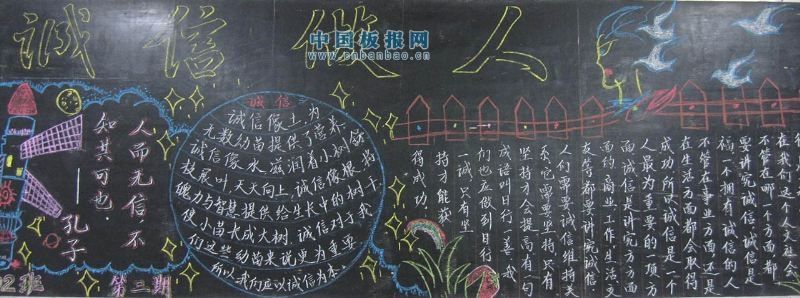 诚信做人
中国板报网
www.cnbanbao.cn
人而无信，不
知其可也。
——孔子
02班
第三期
诚信
诚信像土，为
无数幼苗提供了营养。
诚信像水，滋润着小树，舒
枝展叶，天天向上，诚信像根，将
魄力与智慧提供给生长中的树干，
使小苗长成大树。诚信对于我
们这些幼苗来说更为重要，
所以我们应以诚信为本。
在我们这个人文社会，
不管在哪一个方面，都
要讲究诚信——诚信是
福。一个拥有诚信的人，
不管在事业方面还是
在生活方面都会取得
成功，所以诚信是一个
人最为重要的一项方
面。诚信是讲究方方面
面的，商业、工作、生活、交
友等都要讲究诚信。
人们需要诚信维持关
系，它需要坚持，只有
坚持才会提高。有句
成语叫日行一善，我
们也应做到日行
一诚，只有坚
持才能获
得成功。